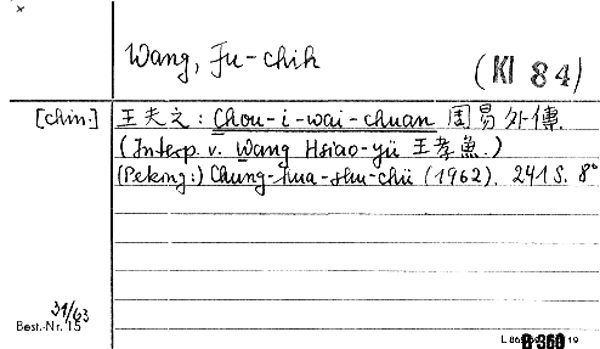 ×
Wang, Fu-chih
(KI 84)
[chin.] 王夫之: Chou-i-wai-chuan 周易外傳
(Interp. v. Wang Hsiao-yü 王孝魚.)
(Peking:) Chung-hua-shu-chü (1962). 241 S. 8°
31/63
Best.-Nr. 15
B 360 19